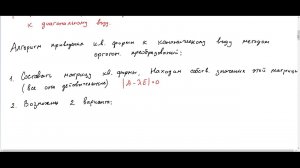 к диагональному виду.
Алгоритм приведения кв. формы к каноническому виду методом
ортогон. преобразований:
1. Составить матрицу кв. формы, Находим собств. значения этой матрицы
(все они действительны) |A-λE|=0
2. Возможны 2 варианта: